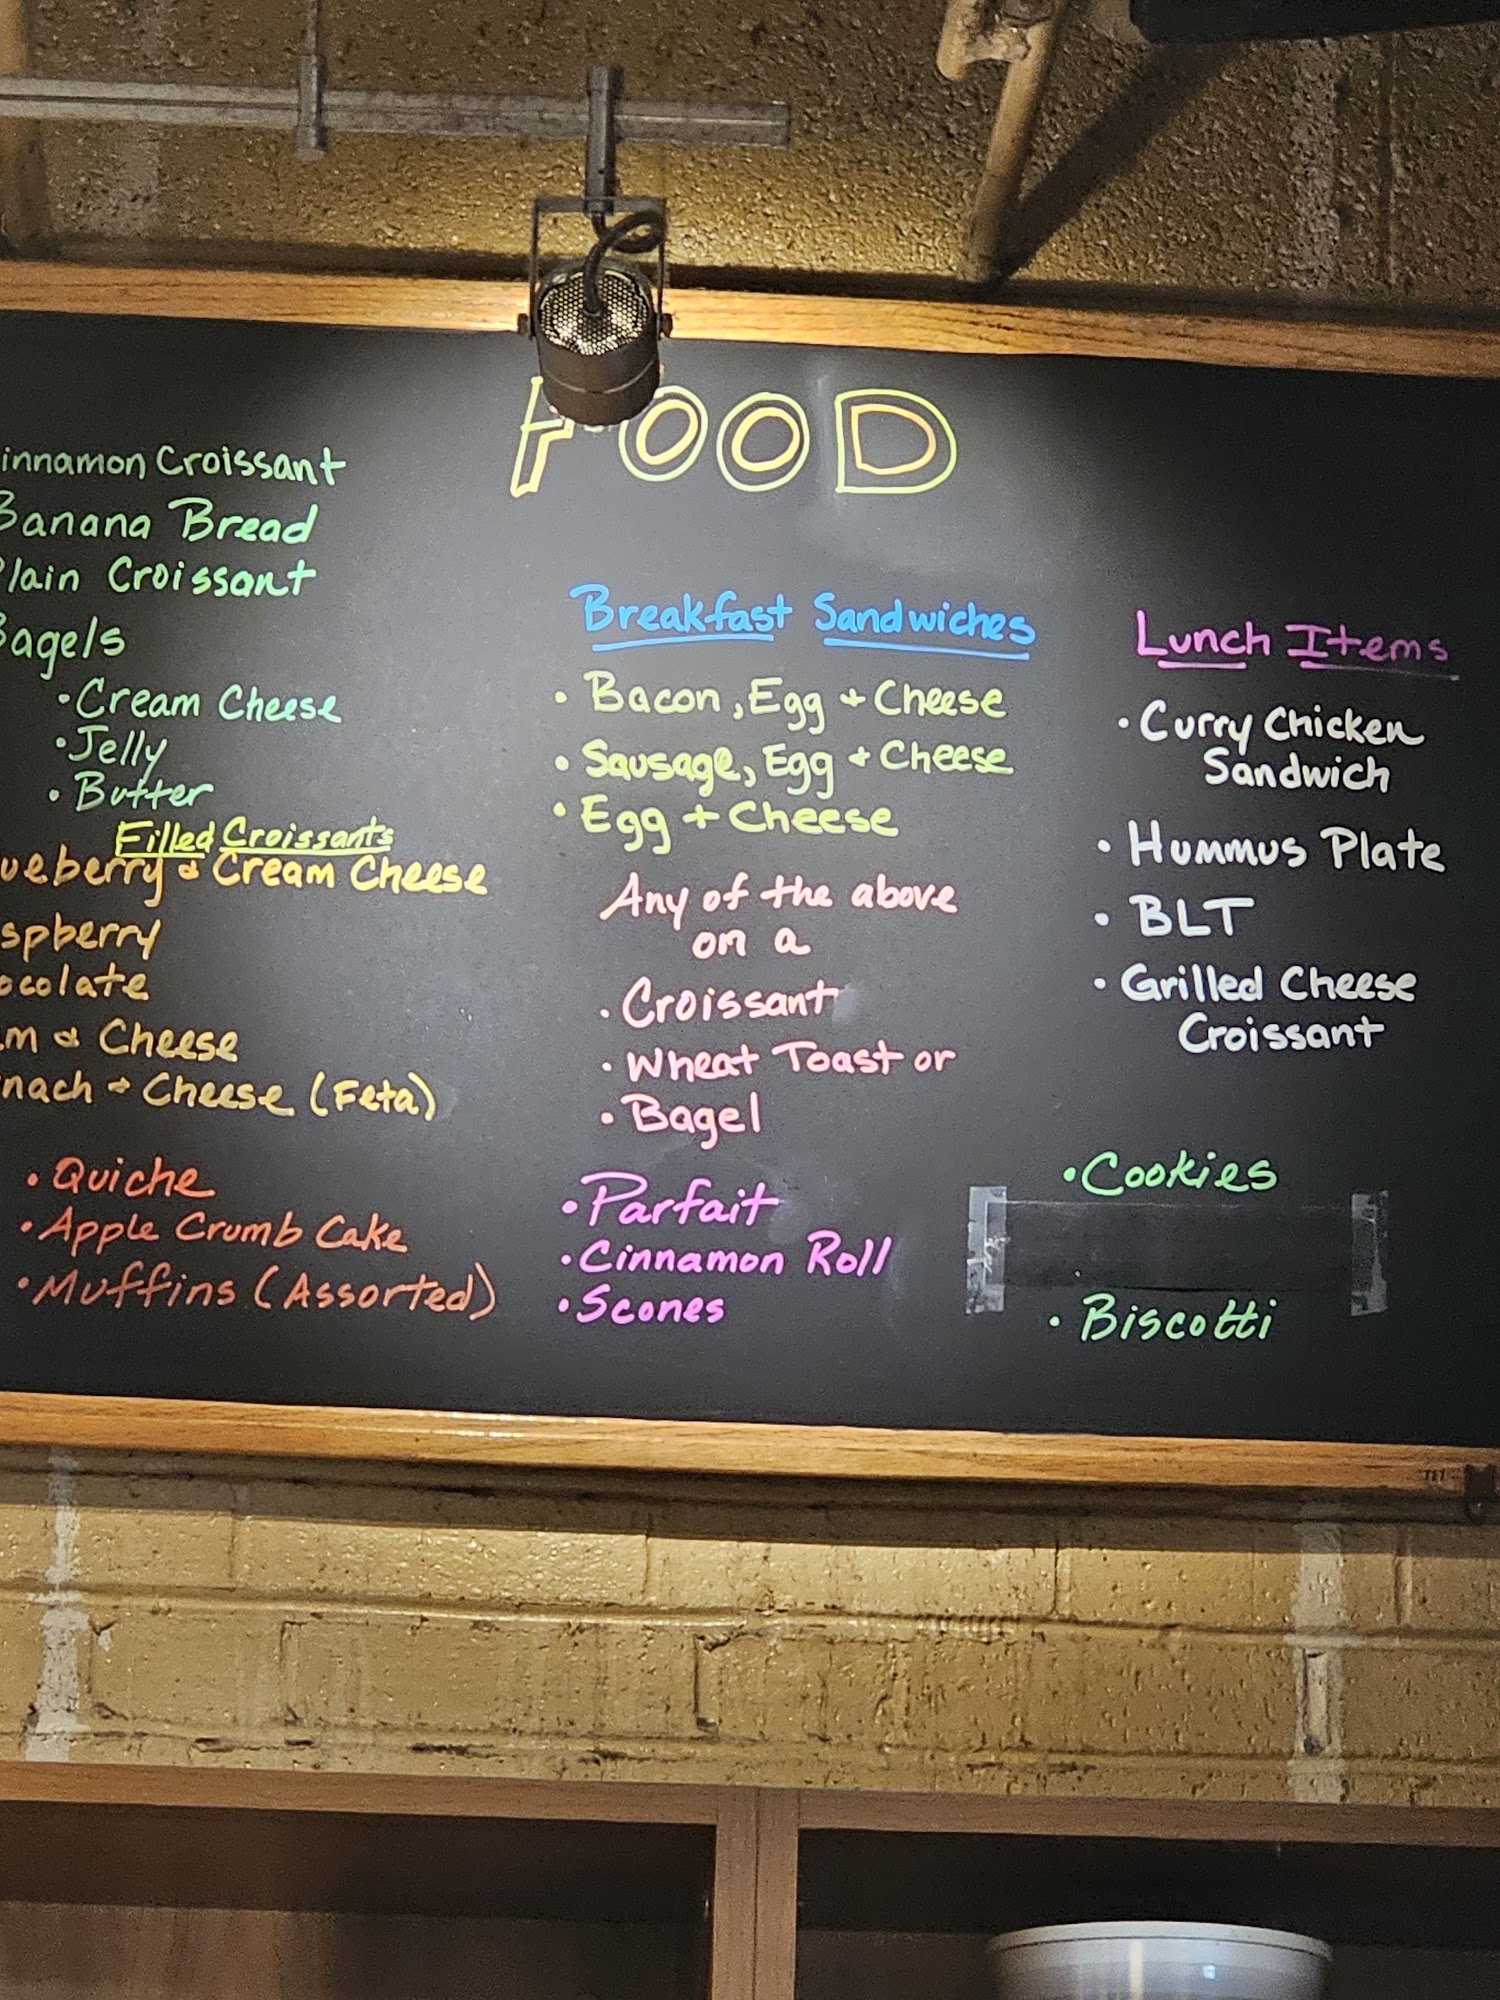 FOOD
innamon Croissant
Banana Bread
Plain Croissant
Bagels
• Cream Cheese
• Jelly
• Butter
Filled Croissants
ueberry & Cream Cheese
spberry
ocolate
m & Cheese
nach + Cheese (Feta)
• Quiche
• Apple Crumb Cake
• Muffins (Assorted)
Breakfast Sandwiches
• Bacon, Egg + Cheese
• Sausage, Egg + Cheese
• Egg + Cheese
Any of the above
on a
• Croissant
• Wheat Toast or
• Bagel
• Parfait
• Cinnamon Roll
• Scones
Lunch Items
• Curry Chicken
Sandwich
• Hummus Plate
• BLT
• Grilled Cheese
Croissant
• Cookies
• Biscotti